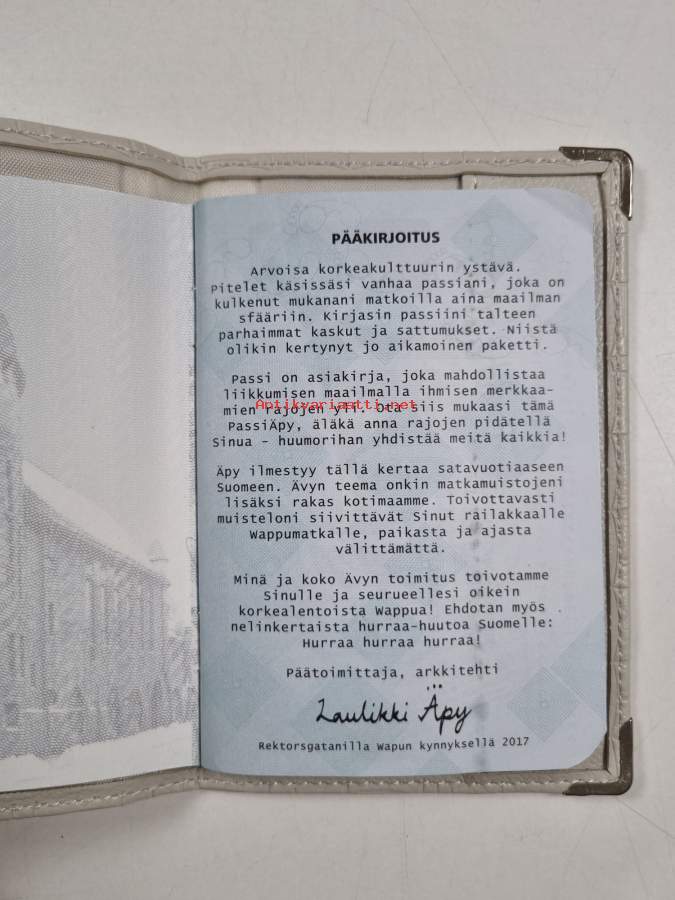 PÄÄKIRJOITUS
Arvoisa korkeakulttuurin ystävä.
Pitelet käsissäsi vanhaa passiani, joka on
kulkenut mukanani matkoilla aina maailman
sfääriin. Kirjasin passiini talteen
parhaimmat kaskut ja sattumukset. Niistä
olikin kertynyt jo aikamoinen paketti.
Passi on asiakirja, joka mahdollistaa
liikkumisen maailmalla ihmisen merkkaa-
Antikvariaatti.net
mien rajojen yli. Ota siis mukaasi tämä
PassiÄpy, äläkä anna rajojen pidätellä
Sinua - huumorihan yhdistää meitä kaikkia!
Äpy ilmestyy tällä kertaa satavuotiaaseen
Suomeen. Ävyn teema onkin matkamuistojeni
lisäksi rakas kotimaamme. Toivottavasti
muisteloni siivittävät Sinut railakkaalle
Wappumatkalle, paikasta ja ajasta
välittämättä.
Minä ja koko Ävyn toimitus toivotamme
Sinulle ja seurueellesi oikein
korkealentoista Wappua! Ehdotan myös
nelinkertaista hurraa-huutoa Suomelle:
Hurraa hurraa hurraa!
Päätoimittaja, arkkitehti
Laulikki Äpy
Rektorsgatanilla Wapun kynnyksellä 2017